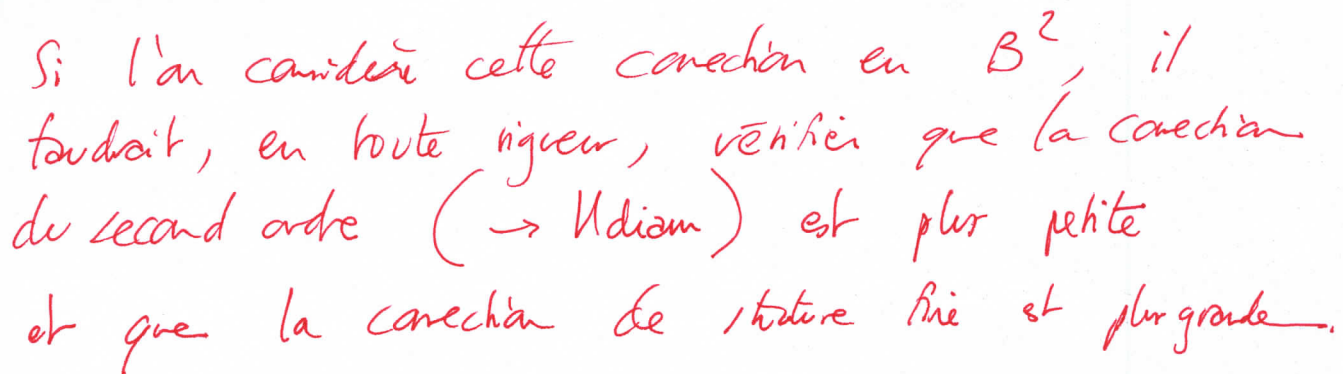 Si l'on considère cette correction en B², il
faudrait, en toute rigueur, vérifier que la correction
du second ordre (→ Hdiam) est plus petite
et que la correction de structure fine est plus grande.